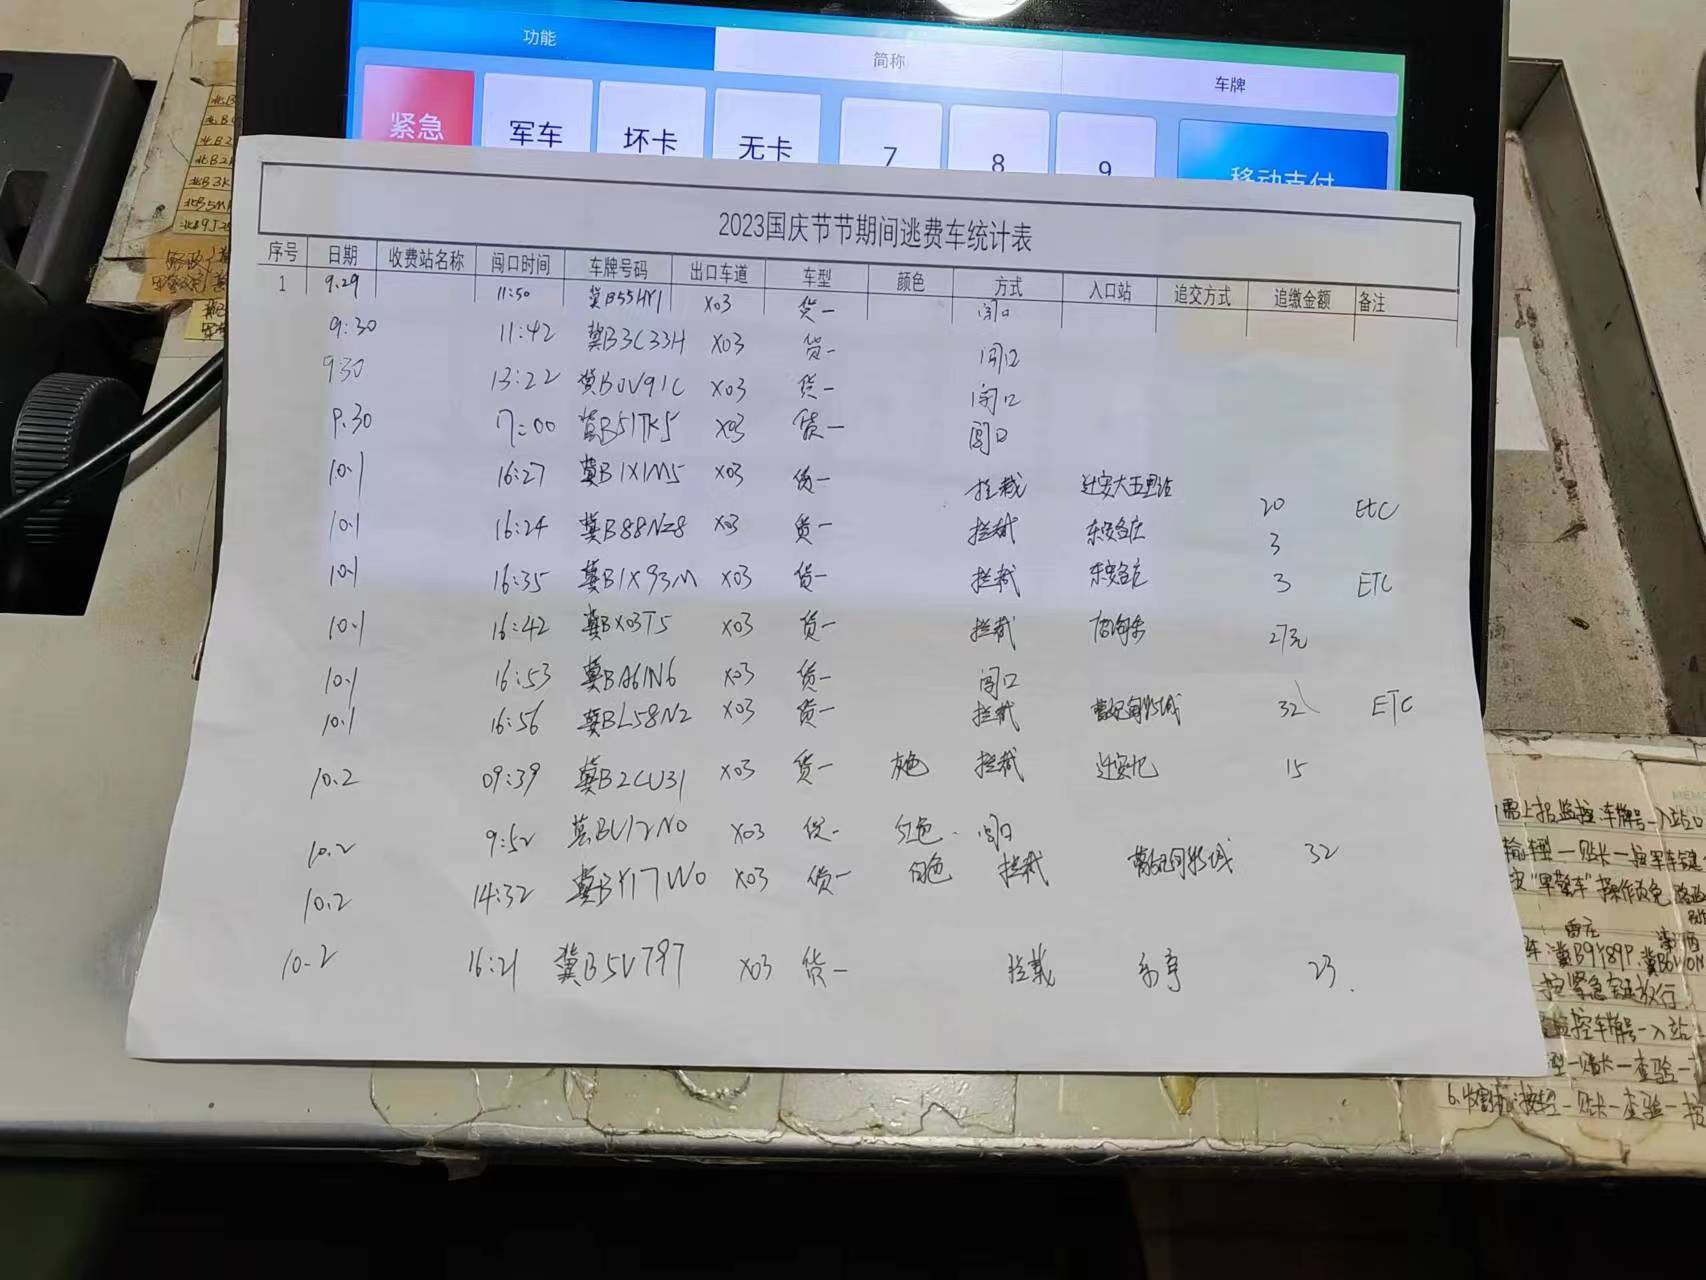 功能 简称 车牌
紧急 军车 坏卡 无卡 7 8 9 移动支付
2023国庆节节期间逃费车统计表
序号 日期 收费站名称 闯口时间 车牌号码 出口车道 车型 颜色 方式 入口站 追交方式 追缴金额 备注
1 9.29 11:50 冀B55HY1 X03 货一 闯口
9:30 11:42 冀B3C33H X03 货一 闯口
9.30 13:22 冀B0V91C X03 货一 闯口
9.30 7:00 冀B51TK5 X03 货一 闯口
10.1 16:27 冀B1X1M5 X03 货一 拦截 迁安大五里站 20 ETC
10.1 16:24 冀B88NZ8 X03 货一 拦截 东安各庄 3
10.1 16:35 冀B1X93M X03 货一 拦截 东安各庄 3 ETC
10.1 16:42 冀BX03T5 X03 货一 拦截 27元
10.1 16:53 冀BA61N6 X03 货一 闯口
10.1 16:56 冀BL58N2 X03 货一 拦截 曹妃甸新城 32 ETC
10.2 09:39 冀B2CU31 X03 货一 灰色 拦截 迁安北 15
10.2 9:52 冀BU12N0 X03 货一 红色 闯口
10.2 14:32 冀BY17W0 X03 货一 白色 拦截 曹妃甸新城 32
10.2 16:21 冀B5V797 X03 货一 拦截 23
需上报监控:车牌号-入站口
"旱莲车"操作
雷庄
车:冀B9Y89P.
按紧急键放行
控车牌号-入站
型-贴卡-查验-
-贴卡-查验-